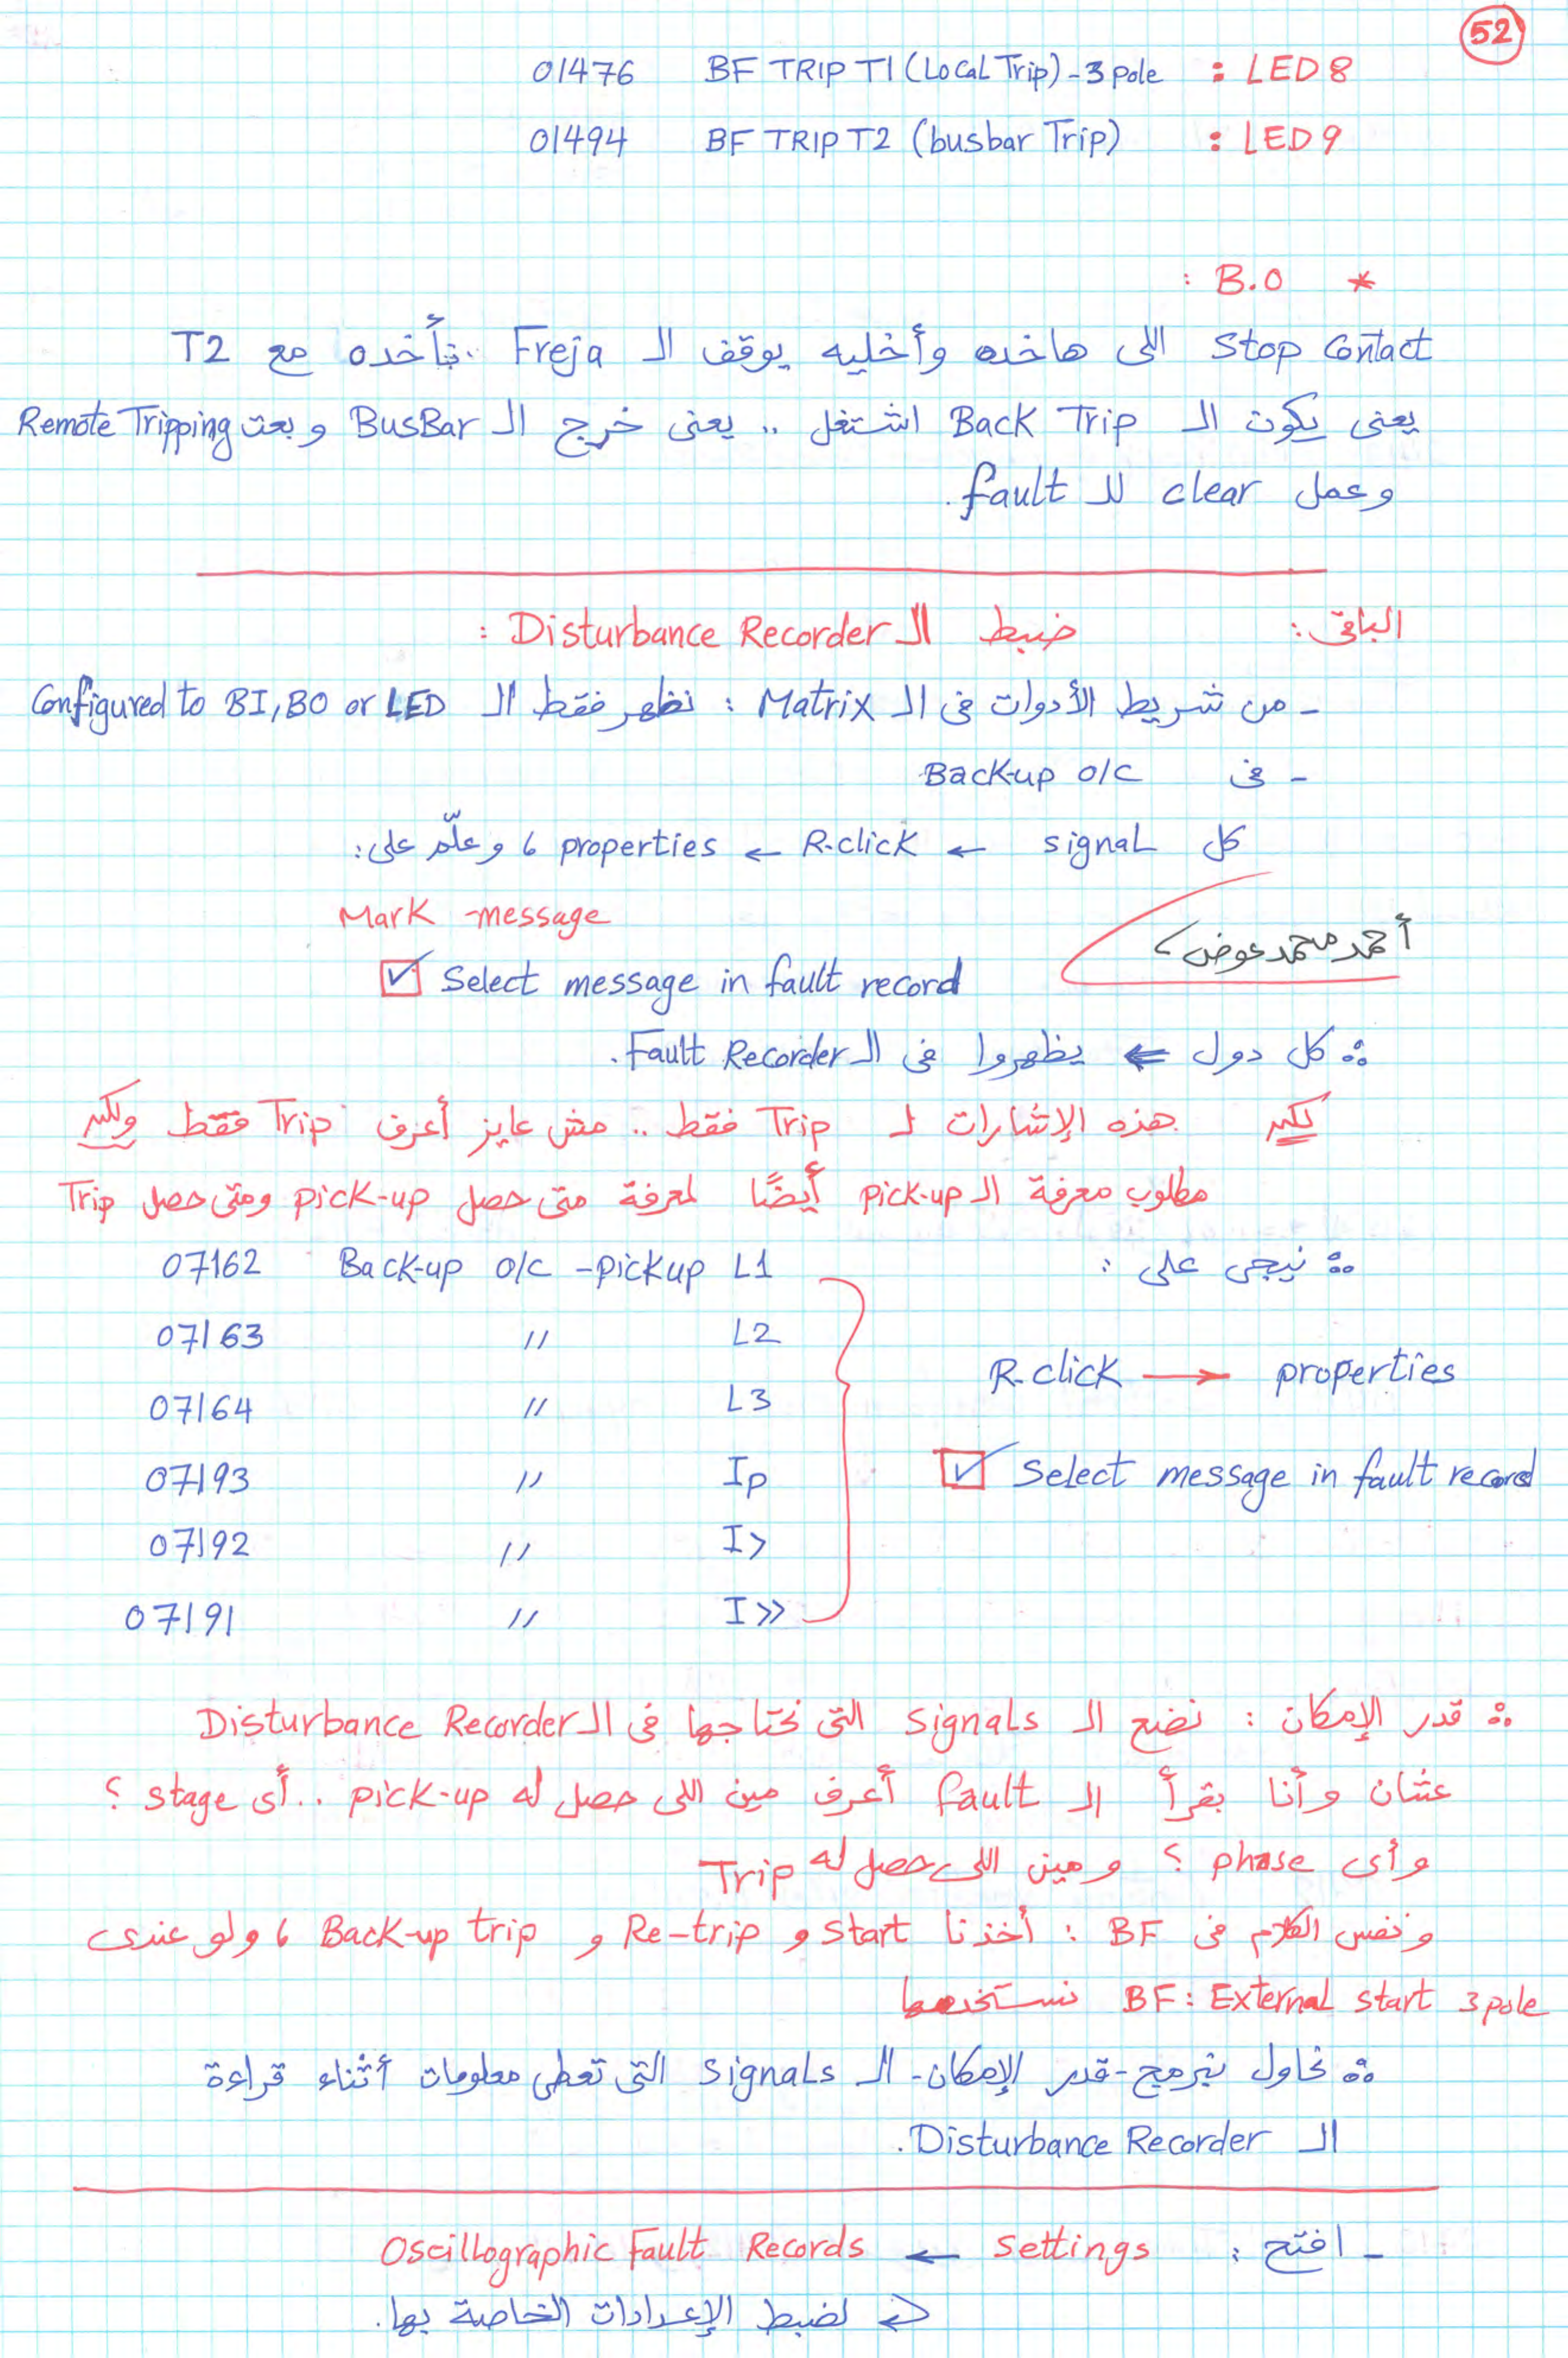 52
01476 BF TRIP T1 (Local Trip) - 3 pole : LED 8
01494 BF TRIP T2 (busbar Trip) : LED 9
* B.O :
Stop Contact اللى هاخده وأخليه يوقف الـ Freja .. بأخده مع T2
يعنى يكون الـ Back Trip اشتغل .. يعنى خرج الـ BusBar وبعت Remote Tripping
وعمل clear للـ fault.
الباقى : ضبط الـ Disturbance Recorder :
- من شريط الأدوات فى الـ Matrix : نظهر فقط الـ Configured to BI, BO or LED
- فى Back-up o/c
كل signal ← R.click ← properties ، وعلّم على :
Mark -message
أحمد محمد عوض
☑ Select message in fault record
∴ كل دول ⇐ يظهروا فى الـ Fault Recorder.
لكن هذه الإشارات لـ Trip فقط .. مش عايز أعرف Trip فقط ولكن
مطلوب معرفة الـ pick-up أيضًا لمعرفة متى حصل pick-up ومتى حصل Trip
∴ نيجى على :
07162 Back-up o/c - pickup L1
07163 " L2
07164 " L3
07193 " Ip
07192 " I>
07191 " I>>
R.click → properties
☑ Select message in fault record
∴ قدر الإمكان : نضع الـ signals التى نحتاجها فى الـ Disturbance Recorder
عشان وأنا بقرأ الـ fault أعرف مين اللى حصل له pick-up .. أى stage ؟
وأى phase ؟ ومين اللى حصل له Trip
ونفس الكلام فى BF : أخذنا start و Re-trip و Back-up trip ، ولو عندى
BF: External start 3 pole نستخدمها
∴ نحاول نبرمج - قدر الإمكان - الـ signals التى تعطى معلومات أثناء قراءة
الـ Disturbance Recorder.
- افتح : settings ← Oscillographic Fault Records
⇐ لضبط الإعدادات الخاصة بها.